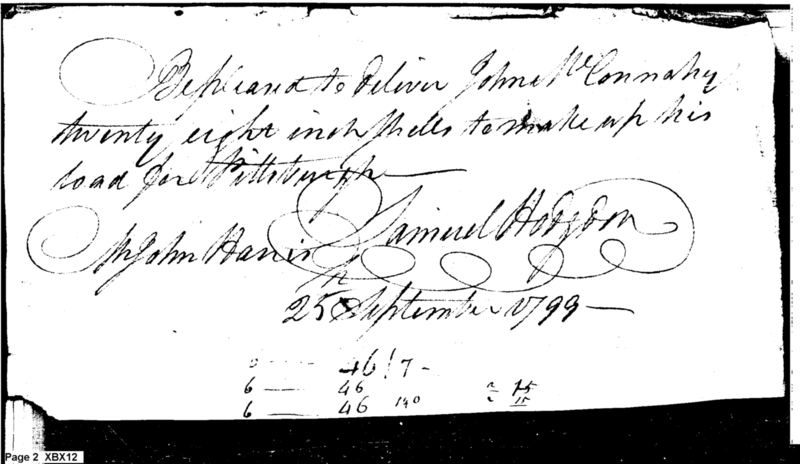 Be pleased to deliver John McConnahy
twenty eight inch shells to make up his
load for Pittsburgh
Samuel Hodgdon
Mr John Harris
25 September 1799
46 7
6 46
6 46 140 15
Page 2 XBX12